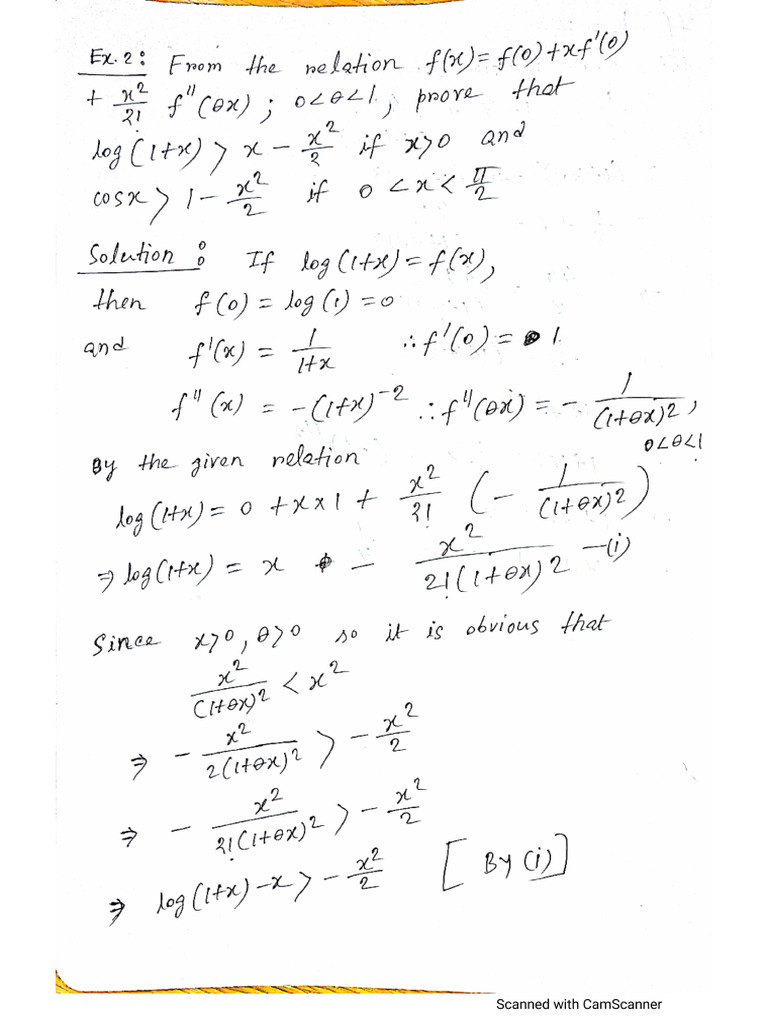 Ex. 2: From the relation f(x) = f(0) + xf'(0)
+ x²/2! f''(θx); 0<θ<1, prove that
log(1+x) > x - x²/2 if x>0 and
cosx > 1 - x²/2 if 0 <x< π/2
Solution: If log(1+x) = f(x),
then f(0) = log(1) = 0
and f'(x) = 1/(1+x) ∴ f'(0) = 1
f''(x) = -(1+x)⁻² ∴ f''(θx) = - 1/(1+θx)²,
0<θ<1
By the given relation
log(1+x) = 0 + x×1 + x²/2! (- 1/(1+θx)²)
⇒ log(1+x) = x - x²/2!(1+θx)² -(i)
Since x>0, θ>0 so it is obvious that
x²/(1+θx)² < x²
⇒ - x²/2(1+θx)² > - x²/2
⇒ - x²/2!(1+θx)² > - x²/2
⇒ log(1+x) - x > - x²/2 [By (i)]
Scanned with CamScanner